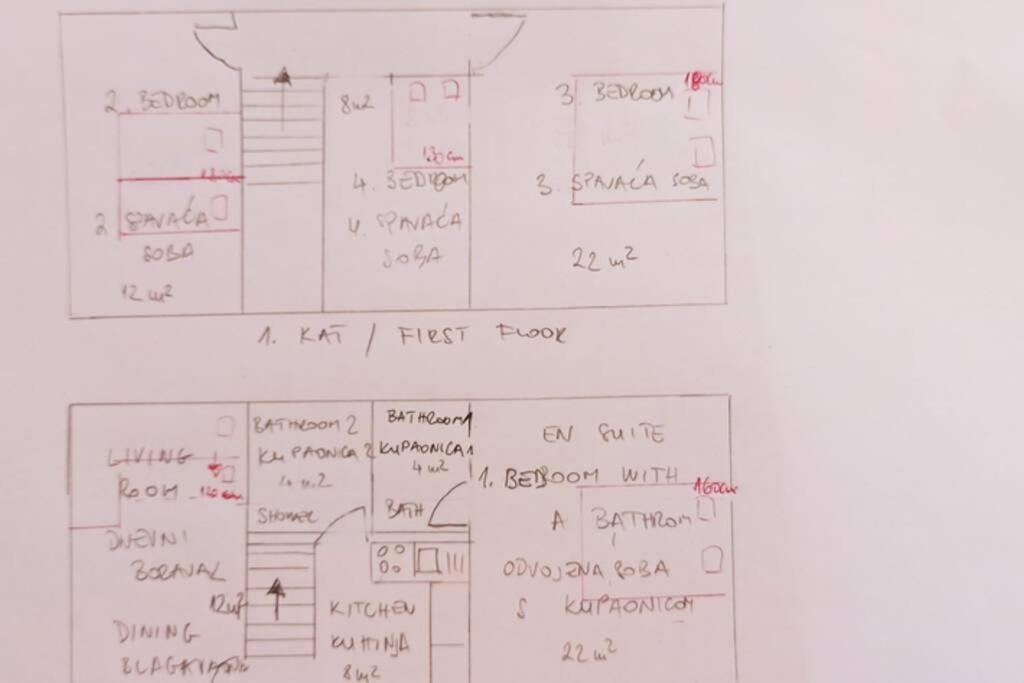 2. BEDROOM
2 SPAVAĆA
SOBA
12 m²
8m²
130cm
4. BEDROOM
4. SPAVAĆA
SOBA
180cm
3. BEDROOM
3. SPAVAĆA SOBA
22 m²
1. KAT / FIRST FLOOR
LIVING
ROOM
120cm
DNEVNI
BORAVAK
12m²
DINING
BATHROOM 2
KUPAONICA 2
SHOWER
BATHROOM 1
KUPAONICA 1
4 m²
BATH
KITCHEN
KUHINJA
8m²
EN SUITE
1. BEDROOM WITH
160cm
A BATHROM
ODVOJENA SOBA
S KUPAONICOM
22 m²